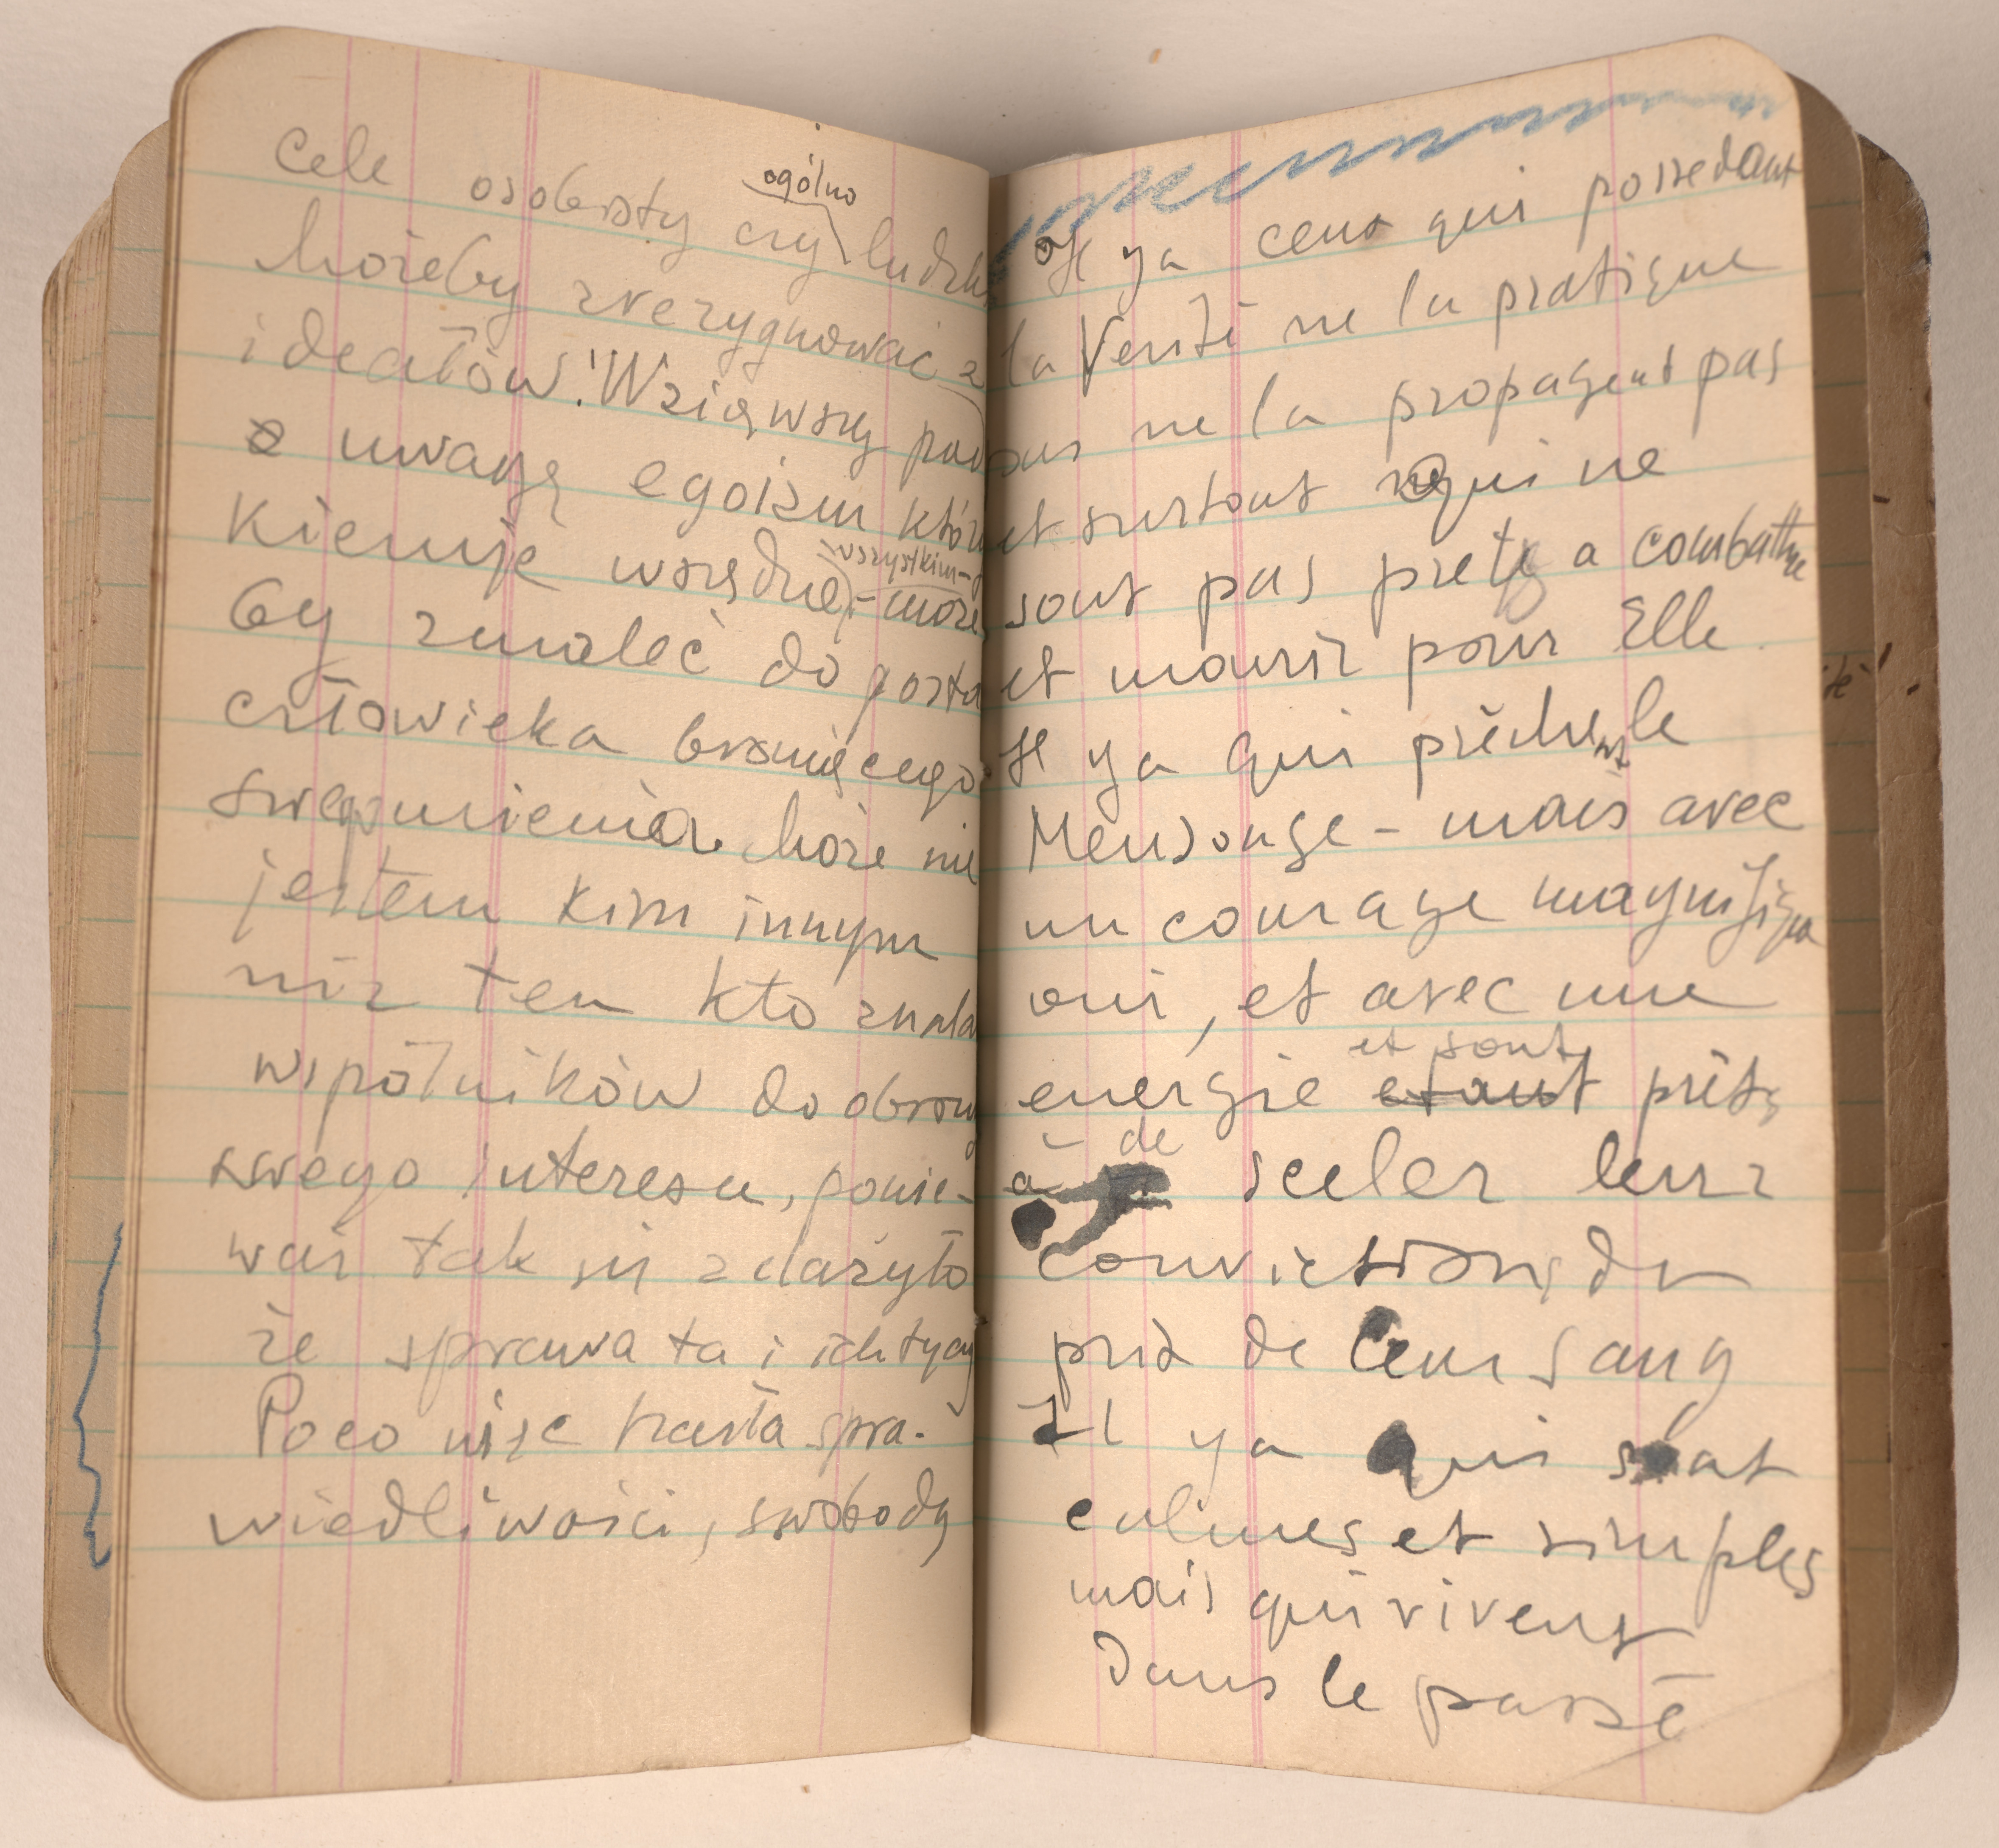 Cele osobisty czy ogólno ludzki
Możeby zrezygnować z
ideałów! Wziąwszy pod
uwagę egoizm który
kieruje wszędzie, wszystkim - może
by znaleć do
człowieka broniącego
swego mienia. Może nie
jestem kim innym
niż ten kto znala
wspólników do obrony
swego interesu, ponie-
waż tak się zdażyło
że sprawa ta i ich tyczy
Poco więc hasła spra-
wiedliwości, swobody
Il y a ceux qui possedant
la Verité ne la pratique
pas ne la propagent pas
et surtout qui ne
sont pas prets a combattre
et mourir pour Elle.
Il y a qui prêchent le
Mensonge - mais avec
un courage magnifique
oui, et avec une
et sont
energie etant prêts
à de
a sceler leur
convictions du
prix de leur sang
Il y a qui sont
calmes et simples
mais qui vivent
dans le passé